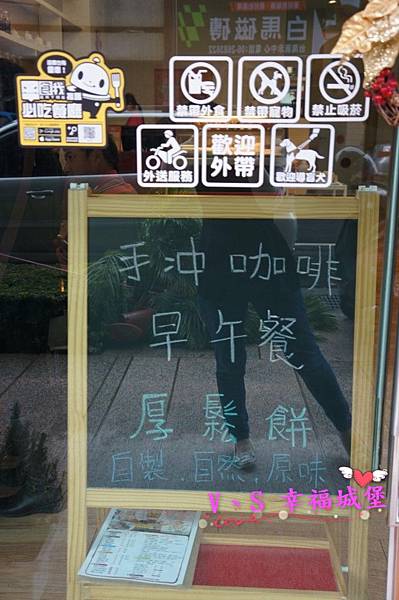 白馬磁磚
食我
必吃餐廳
禁帶外食
禁帶寵物
禁止吸菸
外送服務
歡迎
外帶
歡迎導盲犬
手沖咖啡
早午餐
厚鬆餅
自製.自然.原味
V、S 幸福城堡
love